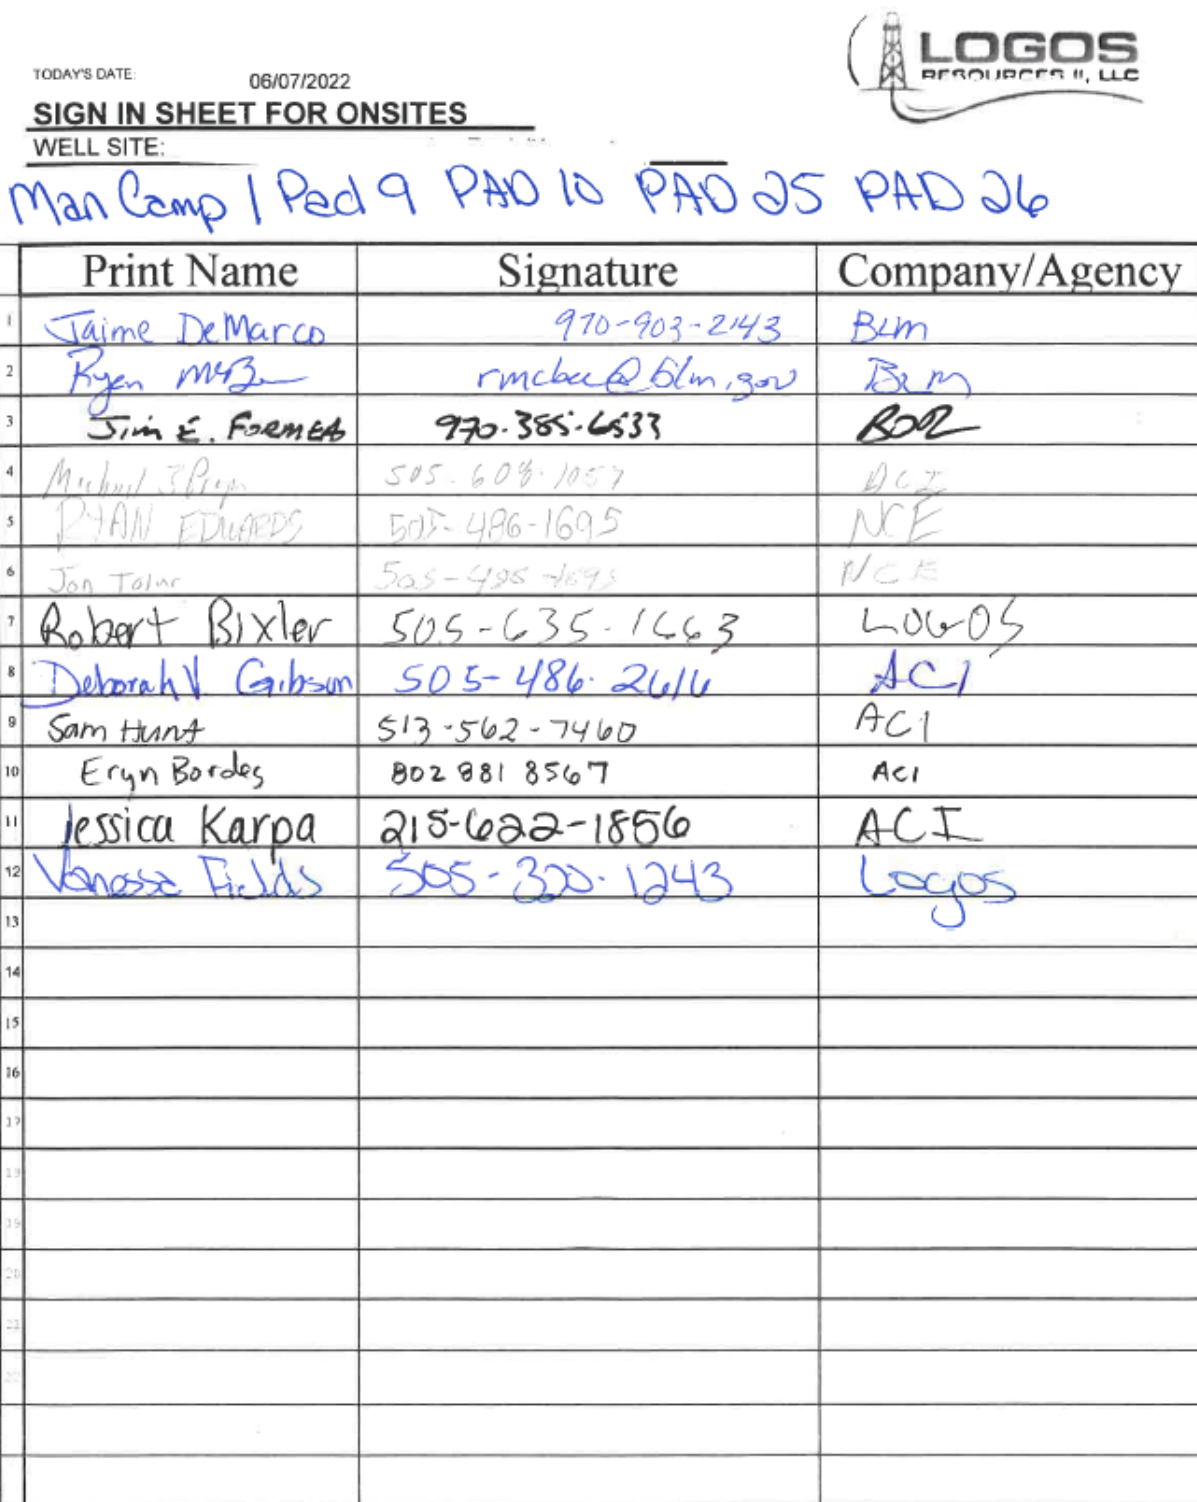 LOGOS
RESOURCES II, LLC
TODAY'S DATE: 06/07/2022
SIGN IN SHEET FOR ONSITES
WELL SITE:
Man Camp 1 Pad 9 PAD 10 PAD 25 PAD 26
Print Name Signature Company/Agency
1 Jaime DeMarco 970-903-2143 BLM
2 Ryan McBee rmcbee@blm.gov BLM
3 Jim E. FORMEA 970-385-6533 BOR
4 505-608-1057 ACI
5 RYAN EDWARDS 505-486-1695 NCE
6 Jon NCE
7 Robert Bixler 505-635-1663 LOGOS
8 Deborah V Gibson 505-486-2616 ACI
9 Sam Hunt 513-562-7460 ACI
10 Eryn Bordes 802 881 8567 ACI
11 Jessica Karpa 215-622-1856 ACI
12 Vanessa Fields 505-320-1243 Logos
13
14
15
16
17
19
19
20
21
22